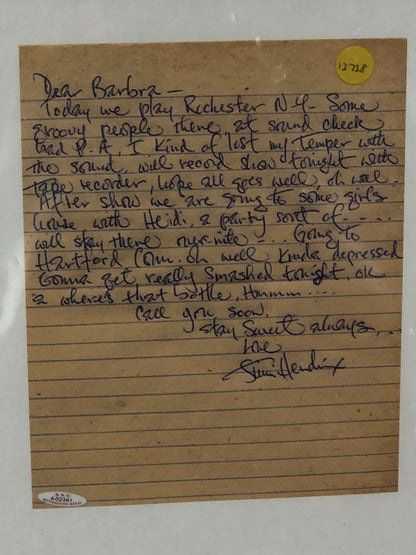 12728
Dear Barbra —
Today we play Rochester N Y - Some
groovy people there, at sound check
bad P.A. I kind of lost my temper with
the sound, will record show tonight with
tape recorder, hope all goes well, oh well
After show we are going to some girls
house with Heidi, a party sort of - . . . .
will stay there - . . . Going to
Hartford Conn. oh well Kinda depressed
Gonna get really smashed tonight, ok
a where's that bottle, Hmmm . . . .
Call you soon,
Stay Sweet always, . .
Love
Jimi Hendrix